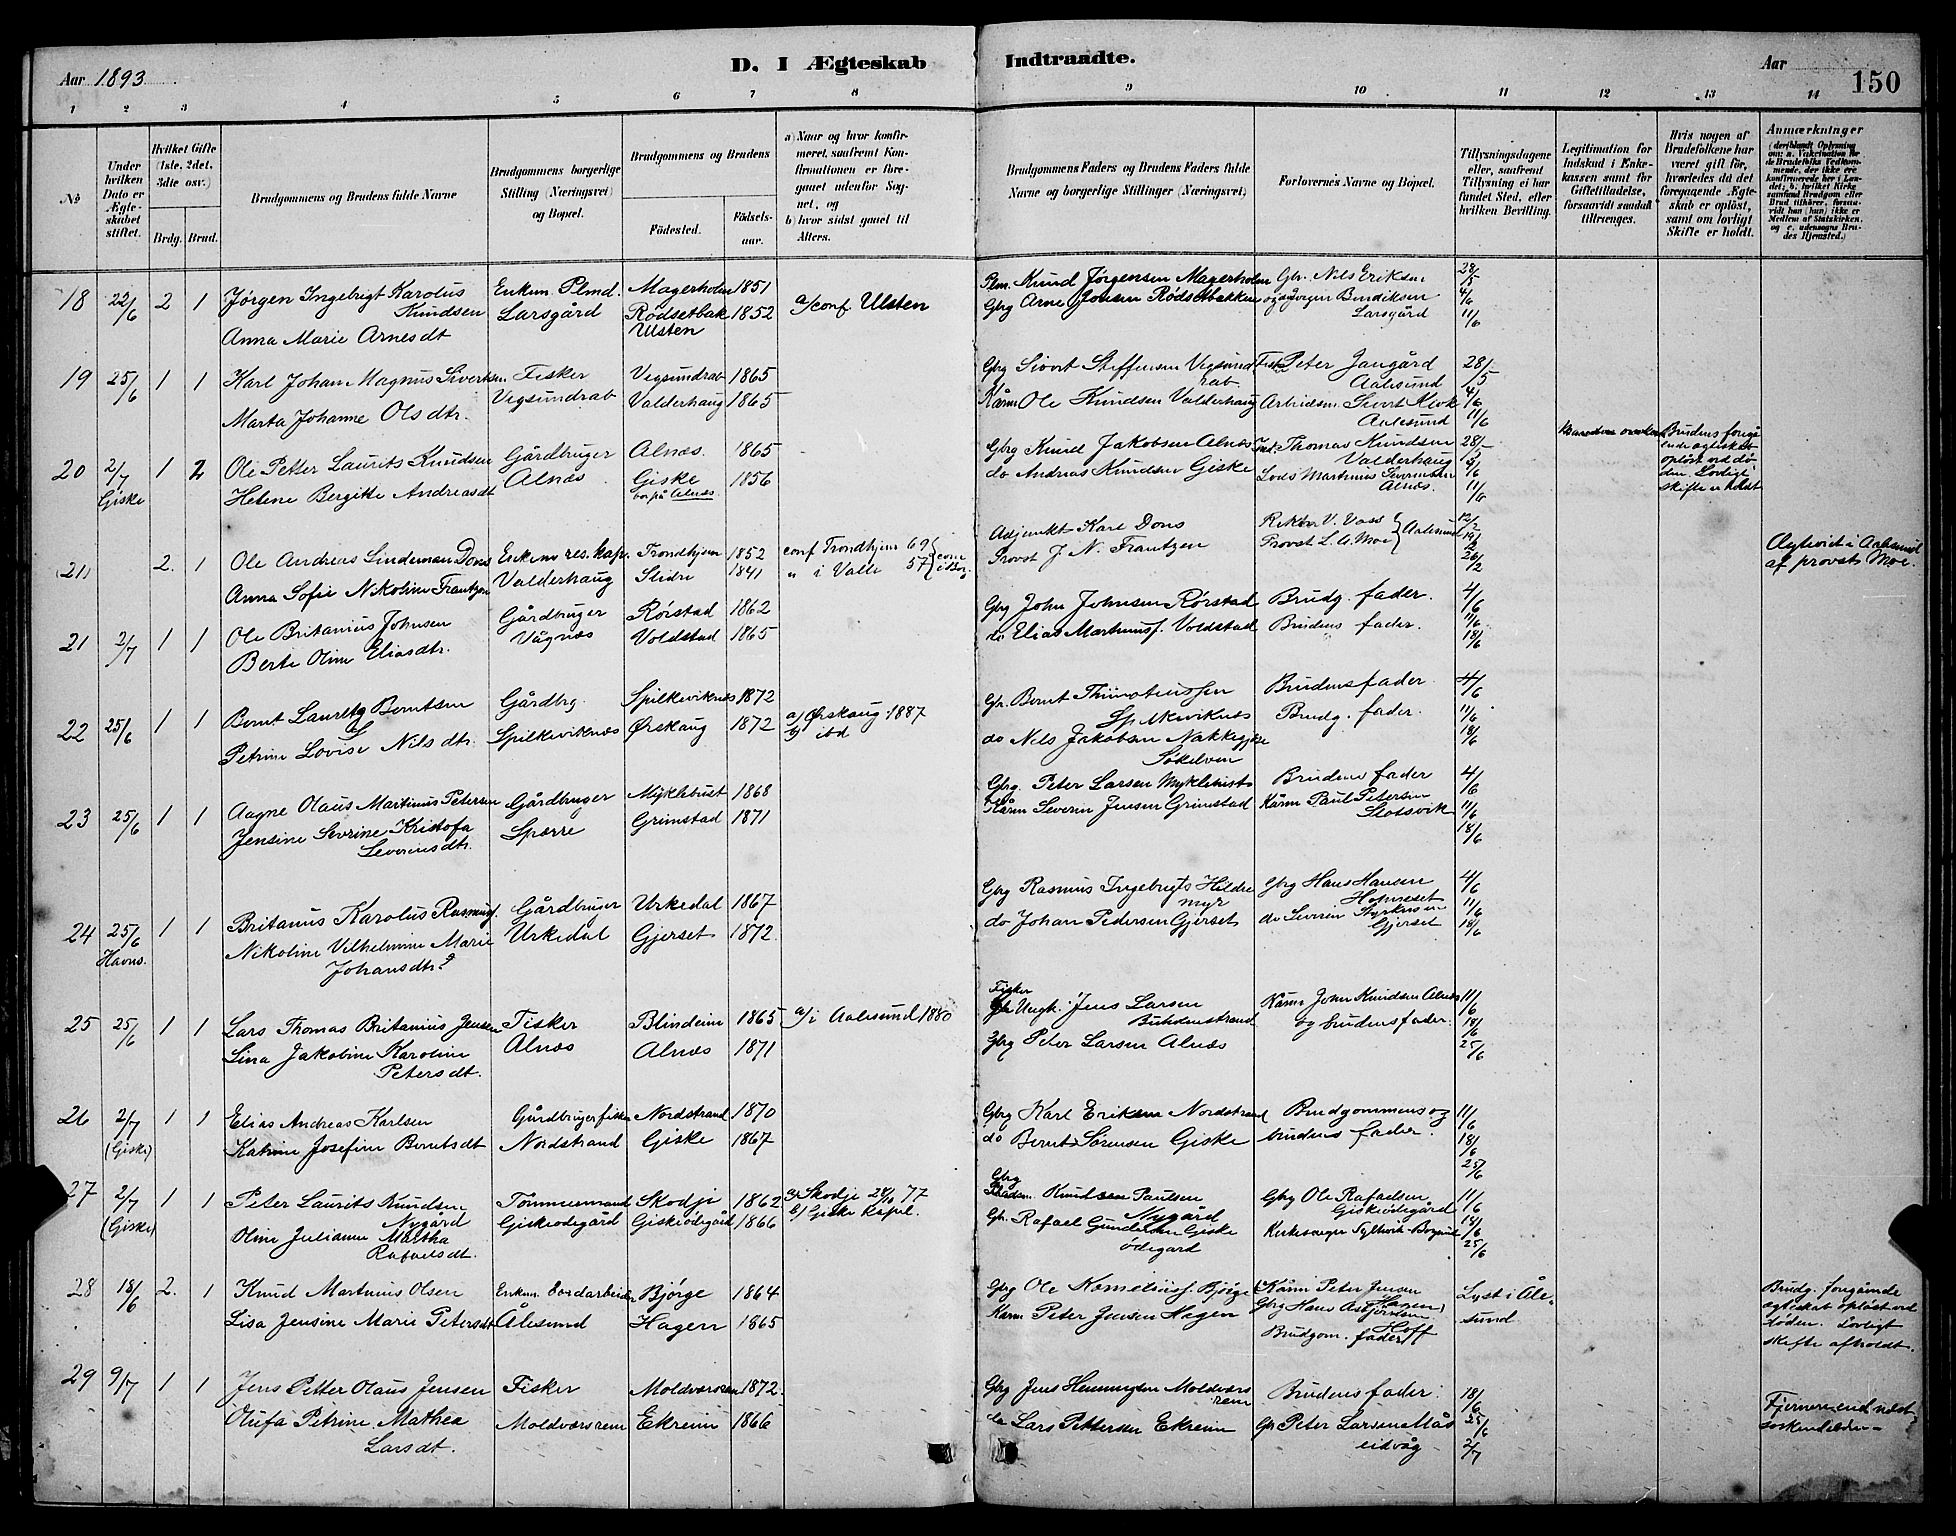 Aar 1893.
D. I Ægteskab Indtraadte.
Aar
150
1 2 3 4 5 6 7 8 9 10 11 12 13 14
No
Under hvilken Dato er Ægteskabet stiftet.
Hvilket Gifte (1ste, 2det, 3die osv.)
Brdg. Brud.
Brudgommens og Brudens fulde Navne
Brudgommens borgerlige Stilling (Næringsvei) og Bopæl.
Brudgommens og Brudens
Födested.
Födselsaar.
a) Naar og hvor konfirmeret, saafremt Konfirmationen er foregaaet udenfor Sognet, og
b) hvor sidst gaaet til Alters.
Brudgommens Faders og Brudens Faders fulde Navne og borgerlige Stillinger (Næringsvei)
Forlovernes Navne og Bopæl.
Tillysningsdagene eller, saafremt Tillysning ei har fundet Sted, efter hvilken Bevilling.
Legitimation for Indskud i Enkekassen samt for Giftetilladelse, forsaavidt saadan tiltrænges.
Hvis nogen af Brudefolkene har været gift för, hvorledes da det foregaaende Ægteskab er oplöst, samt om lovligt Skifte er holdt.
Anmærkninger (deriblandt Oplysning om: a. Vakcination for de Brudefolks Vedkommende, der ikke ere konfirmerede her i Landet; b. hvilket Kirkesamfund Brudgom eller Brud tilhörer, forsaavidt han (hun) ikke er Medlem af Statskirken, og c. udensogns Brudes Hjemsted.)
18 22/6 2 1 Jørgen Ingebrigt Karolus Knudsen Enkem. Plmd. Magerholm 1851 Plm. Knud Jørgensen Magerholm Gbr. Nils Eriksen 28/5
Anna Marie Arnesdt Larsgård Rödsetbak Ulsten 1852 a/conf Ulsten Gbrg Arne Jonsen Rödsetbakken Bendiksen Larsgård 4/6 11/6
19 25/6 1 1 Karl Johan Magnus Sivertsen Fisker Vegsundrab 1865 Gbrg Sivert Steffensen Vegsundrab Peter Jangård Aalesund 28/5
Marta Johanne Olsdtr. Vegsundrab Valderhaug 1865 Kårm Ole Knudsen Valderhaug Arbeidsm. Sivert Aalesund 4/6 11/6
20 2/7 Giske 1 2 Ole Petter Laurits Knudsen Gårdbruger Alnæs. 1865 Gbrg Knud Jakobsen Alnæs Thomas Knudsen Valderhaug 28/5 Brudens foregående ægteskab oplöst ved döden. Lovligt skifte er holdt
Helene Bergitte Andreasdt Alnæs Giske bor på Alnæs 1856 do Andreas Knudsen Giske Lods Martinus Severinsen Alnæs. 4/6 11/6
(21) 2. 1 Ole Andreas Lindeman Dons Enkem. res. kap. Trondhjem 1852 conf Trondhjem 69 Adjunkt Karl Dons Rektor V. Voss Aalesund 12/2
Anna Sofie Nikoline Frantzen Valderhaug Slidre 1841 " i Valle 57 Provst J. N. Frantzen Provst L. A. Moe 19/2 26/2 Ægtevist i Aalesund af provst Moe.
21 2/7 1 1 Ole Britanius Johnsen Gårdbruger Rørstad 1862 Gbrg John Johnsen Rørstad Brudg. fader. 4/6
Berte Oline Eliasdtr. Vågnæs Voldstad 1865 do Elias Martinus. Voldstad Brudens fader. 11/6 18/6
22 25/6 1 1 Bernt Lauritz Berntsen Gårdbrg. Spilkeviknæs 1872 Gbr. Bernt Spilkeviknæs Brudens fader. 4/6
Petrine Lovise Nilsdtr. Spilkeviknæs Ørskaug 1872 a/ Ørskaug 1887 b/ ibd do Nils Jakobsen Nakkegjære Søkelven Brudg. fader. 11/6 18/6
23 25/6 1 1 Aagne Olaus Martinus Petersen Gårdbruger Myklebust 1868 Gbrg. Peter Larsen Myklebust Brudens fader 4/6
Jensine Sevrine Kristofa Severinsdtr. Spærre Grimstad 1871 Kårm Severin Jensen Grimstad Kårm Paul Petersen Slotsvik 11/6 18/6
24 25/6 Havns. 1 1 Britanus Karolus Rasmusf. Gårdbruger Urkedal 1867 Gbrg Rasmus Ingebrigts Hildremyr Gbrg Hans Hansen 4/6
Nikoline Vilhelmine Marie Johansdtr. Urkedal Gjerset 1872. do Johan Pedersen Gjerset do Gjerset 11/6 18/6
25 25/6 1 1 Lars Thomas Britanius Jensen Fisker Blindeim 1865 a/i Aalesund 1880 Fisker Ungk. Jens Larsen Buholmstrand Kårm John Knudsen Alnæs 11/6
Lina Jakobine Karoline Petersdt. Alnæs Alnæs 1871 Gbrg Peter Larsen Alnæs og brudens fader. 18/6 25/6
26 2/7 (Giske) 1 1 Elias Andreas Karlsen Gårdbruger fisker Nordstrand 1870 Gbrg Karl Eriksen Nordstrand Brudgommens og 11/6
Katrine Josefine Berntsdt Nordstrand Giske 1867 do Bernt Sørensen Giske brudens fader. 18/6 25/6
27 2/7 (Giske) 1 1 Peter Laurits Knudsen Nygård Tömmermand Skodje 1862 a/ Skodje 77 Gbrg Knudsen Paulsen Nygård Gbrg Ole Rafaelsen Giskeödegård 11/6
Oline Julianne Martha Rafaelsdt. Giskeödegård Giskeödegård 1866 b/ Giske Kapel. Gbr. Rafael Gundersen Giske ödegard Kirkesanger Sylteviks Borgund 18/6 25/6
28 18/6 2. 1 Knud Martinus Olsen Enkem. Jordarbeider Bjørge 1864 Gbrg Ole Korneliusf. Bjørge Kårm Peter Jensen Hagen Lyst i Ålesund Brudg. foregående ægteskab oplöst ved döden. Lovligt skifte afholdt.
Lisa Jensine Marie Petersdt Ålesund Hagen 1865 Kårm Peter Jensen Hagen Gbrg Hans Asgjersen Hoff Brudgom. fader
29 9/7 1 1 Jens Petter Olaus Jensen Fisker Moldværsrem 1872. Gbrg Jens Henningsen Moldværsrem Brudens fader. 18/6
Olufa Petrine Mathea Larsdt. Moldværsrem Ekreim 1866 do Lars Pettersen Ekreim Gbr Peter Larsen Måseidvåg 25/6 2/7 Fjernere end næstsöskendebörn